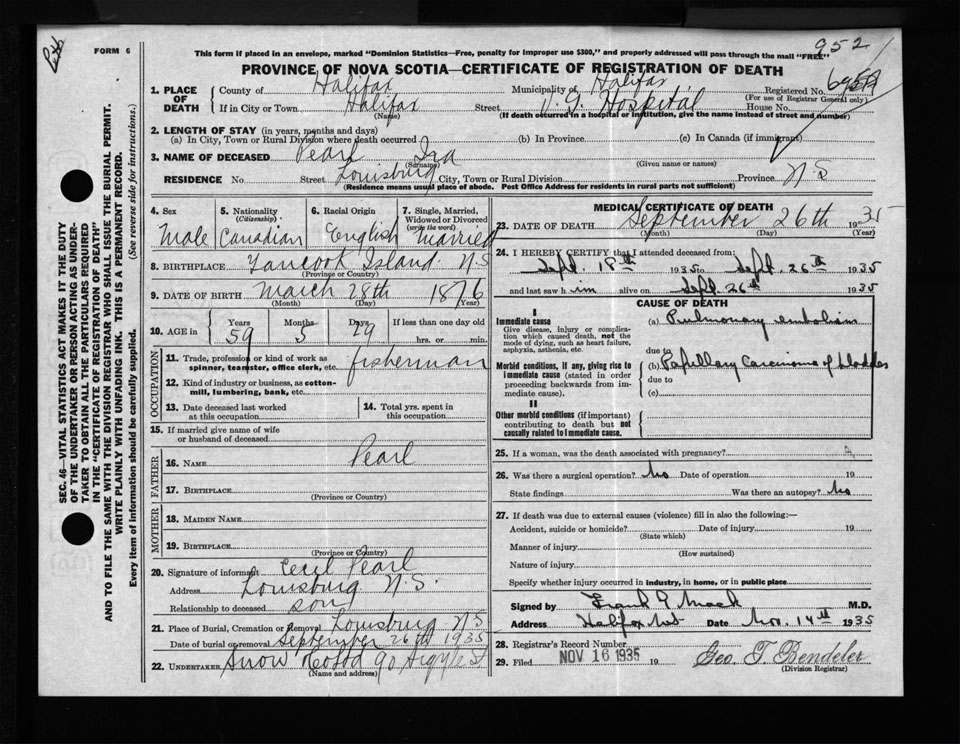 FORM 6
This form if placed in an envelope, marked "Dominion Statistics—Free, penalty for improper use $300," and properly addressed will pass through the mail "FREE"
952
PROVINCE OF NOVA SCOTIA—CERTIFICATE OF REGISTRATION OF DEATH
1. PLACE OF DEATH
County of Halifax Municipality of Halifax Registered No.
(For use of Registrar General only)
If in City or Town Halifax Street V. G. Hospital House No.
(Name) (If death occurred in a hospital or institution, give the name instead of street and number)
2. LENGTH OF STAY (in years, months and days)
(a) In City, Town or Rural Division where death occurred (b) In Province (c) In Canada (if immigrant)
3. NAME OF DECEASED Pearl Ira
(Surname) (Given name or names)
RESIDENCE No. Street Louisburg City, Town or Rural Division Province N S
(Residence means usual place of abode. Post Office Address for residents in rural parts not sufficient)
4. Sex Male
5. Nationality (Citizenship) Canadian
6. Racial Origin English
7. Single, Married, Widowed or Divorced (write the word) Married
8. BIRTHPLACE Tancook Island N S
(Province or Country)
9. DATE OF BIRTH March 28th 1876
(Month) (Day) (Year)
10. AGE in Years Months Days If less than one day old
59 5 29 hrs. or min.
OCCUPATION
11. Trade, profession or kind of work as spinner, teamster, office clerk, etc. fisherman
12. Kind of industry or business, as cotton-mill, lumbering, bank, etc.
13. Date deceased last worked at this occupation
14. Total yrs. spent in this occupation
15. If married give name of wife or husband of deceased
FATHER
16. NAME Pearl
17. BIRTHPLACE
(Province or Country)
MOTHER
18. MAIDEN NAME
19. BIRTHPLACE
(Province or Country)
20. Signature of informant Cecil Pearl
Address Louisburg N. S.
Relationship to deceased son
21. Place of Burial, Cremation or Removal Louisburg N S
Date of burial or removal September 26th 1935
22. UNDERTAKER Snow Co Ltd 90 Argyle St
(Name and address)
MEDICAL CERTIFICATE OF DEATH
23. DATE OF DEATH September 26th 1935
(Month) (Day) (Year)
24. I HEREBY CERTIFY that I attended deceased from:
Sept. 18th 1935 to Sept. 26th 1935
and last saw him alive on Sept. 26th 1935
CAUSE OF DEATH
I
Immediate cause
Give disease, injury or complication which caused death, not the mode of dying, such as heart failure, asphyxia, asthenia, etc.
(a) Pulmonary embolism
due to
Morbid conditions, if any, giving rise to immediate cause (stated in order proceeding backwards from immediate cause).
(b) Papillary Carcinoma of bladder
due to
(c)
II
Other morbid conditions (if important) contributing to death but not causally related to immediate cause.
25. If a woman, was the death associated with pregnancy?
26. Was there a surgical operation? No Date of operation 19
State findings Was there an autopsy? No
27. If death was due to external causes (violence) fill in also the following:—
Accident, suicide or homicide? Date of injury 19
(State which)
Manner of injury
(How sustained)
Nature of injury
Specify whether injury occurred in industry, in home, or in public place
Signed by Frank G Mack M.D.
Address Halifax N.S. Date Nov. 14th 1935
28. Registrar's Record Number
29. Filed NOV 16 1935 19 Geo. T. Bendeler
(Division Registrar)
SEC. 46—VITAL STATISTICS ACT MAKES IT THE DUTY
OF THE UNDERTAKER OR PERSON ACTING AS UNDER-
TAKER TO OBTAIN ALL THE PARTICULARS REQUIRED
IN THE "CERTIFICATE OF REGISTRATION OF DEATH"
AND TO FILE THE SAME WITH THE DIVISION REGISTRAR WHO SHALL ISSUE THE BURIAL PERMIT.
WRITE PLAINLY WITH UNFADING INK. THIS IS A PERMANENT RECORD.
Every item of information should be carefully supplied. (See reverse side for instructions.)